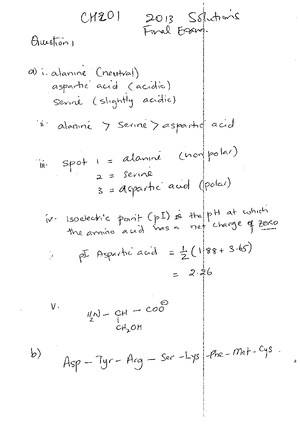 CH201 2013 Solutions
Final Exam.
Question 1
a) i. alanine (neutral)
aspartic acid (acidic)
serine (slightly acidic)
ii. alanine > serine > aspartic acid
iii. spot 1 = alanine (non polar)
2 = serine
3 = aspartic acid (polar)
iv. Isoelectric point (pI) is the pH at which
the amino acid has a net charge of zero
pI Aspartic acid = 1/2 (1.88 + 3.65)
= 2.26
v. H2N - CH - COO⊖
CH2OH
b) Asp - Tyr - Arg - Ser - Lys - Phe - Met - Cys.